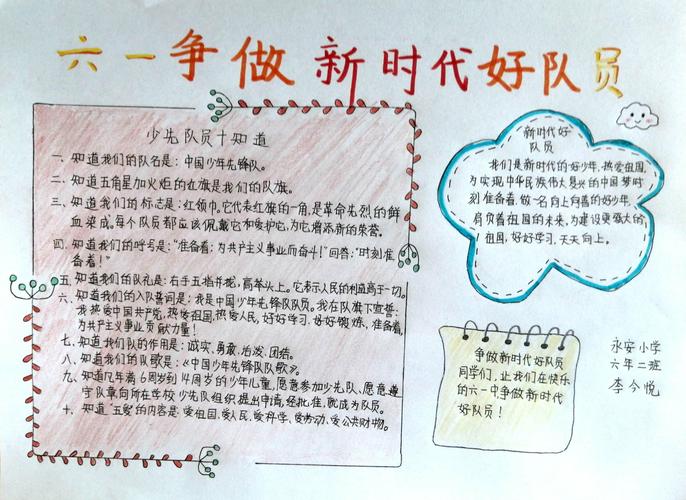 六一争做新时代好队员
少先队员十知道
一、知道我们的队名是：中国少年先锋队。
二、知道五角星加火炬的红旗是我们的队旗。
三、知道我们的标志是：红领巾。它代表红旗的一角,是革命先烈的鲜
血染成。每个队员都应该佩戴它和爱护它,为它增添新的荣誉。
四、知道我们的呼号是："准备着：为共产主义事业而奋斗！"回答："时刻准
备着！"
五、知道我们的队礼是：右手五指并拢,高举头上。它表示人民的利益高于一切。
六、知道我们的入队誓词是：我是中国少年先锋队队员。我在队旗下宣誓：
我热爱中国共产党,热爱祖国,热爱人民,好好学习,好好锻炼,准备着,
为共产主义事业贡献力量！
七、知道我们队的作用是：诚实、勇敢、活泼、团结。
八、知道我们的队歌是：《中国少年先锋队队歌》。
九、知道凡年满6周岁到14周岁的少年儿童,愿意参加少先队、愿意遵
守队章向所在学校少先队组织提出申请,经批准,就成为队员。
十、知道"五爱"的内容是爱祖国、爱人民、爱科学、爱劳动、爱公共财物。
新时代好
队员
我们是新时代的好少年,热爱祖国,
为实现中华民族伟大复兴的中国梦时
刻准备着,做一名向上向善的好少年,
肩负着祖国的未来,为建设更强大的
祖国,好好学习,天天向上。
争做新时代好队员
同学们,让我们在快乐
的六一中争做新时代
好队员！
永安小学
六年二班
李今悦